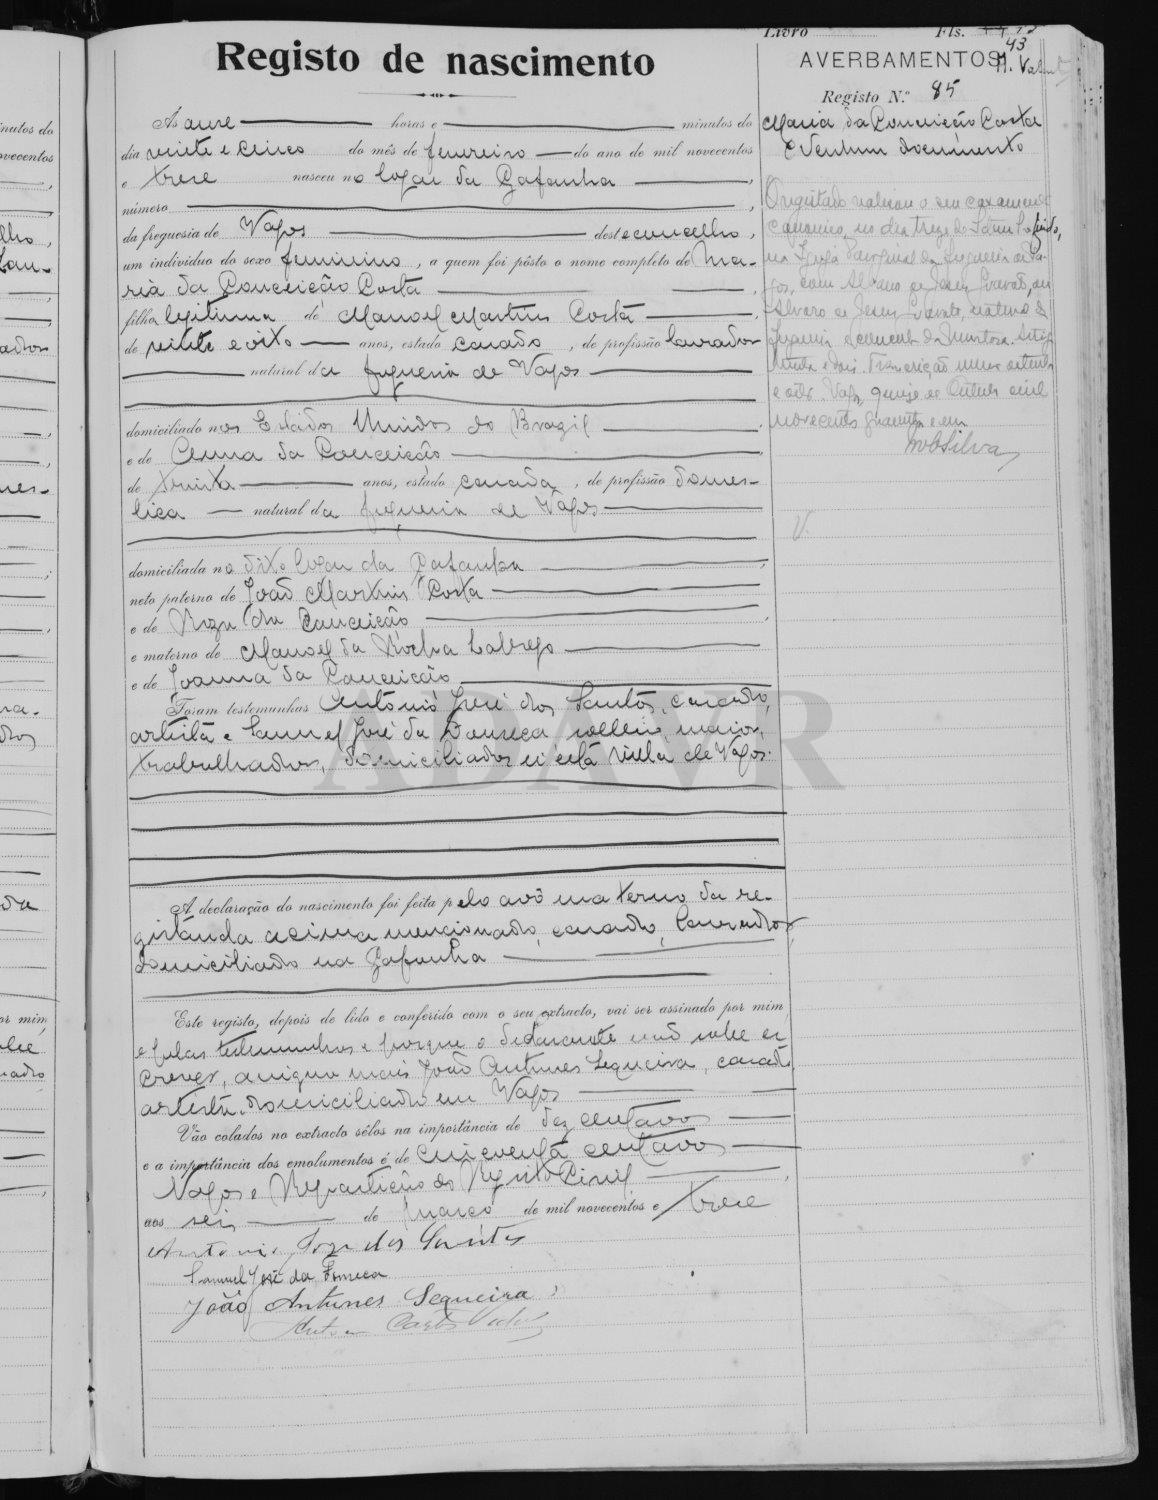 Livro Fls.
43
Registo de nascimento
AVERBAMENTOS
Registo N.º 85
Maria da Conceição Costa
Nenhum documento
Às onze horas e minutos do
dia vinte e cinco do mês de fevereiro do ano de mil novecentos
e treze nasceu no logar da Gafanha
número
da freguesia de Vagos deste concelho,
um indivíduo do sexo feminino, a quem foi pôsto o nome completo de Ma-
ria da Conceição Costa
filha legitima de Manoel Martins Costa
de vinte e oito anos, estado casado, de profissão lavrador
natural da freguesia de Vagos
domiciliado nos Estados Unidos do Brazil
e de Anna da Conceição
de trinta anos, estado casada, de profissão domes-
tica natural da freguesia de Vagos
domiciliada no dito logar da Gafanha
neto paterno de João Martins Costa
e de Roza da Conceição
e materno de Manoel da Rocha Labrego
e de Joanna da Conceição
Foram testemunhas António José dos Santos, casado,
artista e Samuel José da Fonseca solteiro, maior,
trabalhador, domiciliados n'esta villa de Vagos.
ADAVR
A declaração do nascimento foi feita pelo avô materno da re-
gistanda acima mencionado, casado, lavrador,
domiciliado na Gafanha
Este registo, depois de lido e conferido com o seu extracto, vai ser assinado por mim
e pelas testemunhas e porque o declarante não sabe es-
crever, assigna mais João Antunes Sequeira, casado
artista, domiciliado em Vagos
Vão colados no extracto sêlos na importância de dez centavos
e a importância dos emolumentos é de cincoenta centavos
Vagos e Repartição do Registo Civil
aos seis de março de mil novecentos e treze
Antonio José dos Santos
Samuel José da Fonseca
João Antunes Sequeira
O registado realizou o seu casamento
canonico no dia treze de
na Igreja Paroquial da freguesia de Va-
gos, com Alvaro de Jesus
Alvaro de Jesus natural da
freguesia e concelho da Murtosa.
Transcrição numero
e oito. Vagos, quinze de Outubro mil
novecentos quarenta e um
Silva